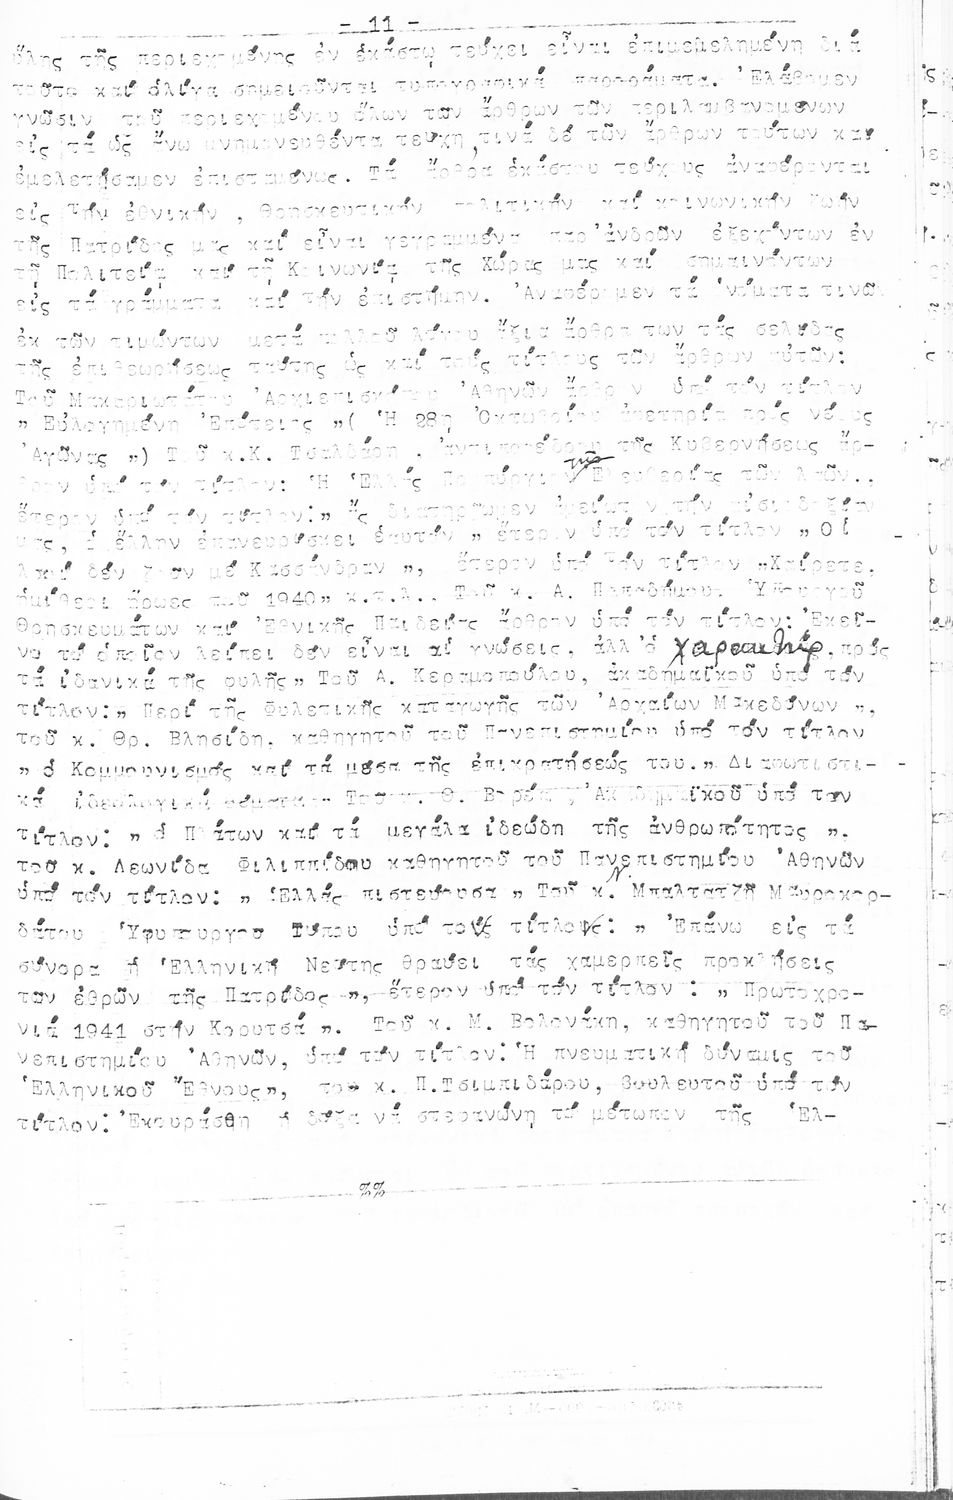 - 11 -
ὕλης τῆς περιεχομένης ἐν ἑκάστῳ τεύχει εἶναι ἐπιμεμελημένη διά
τοῦτο καί ὀλίγα σημειοῦνται τυπογραφικά παροράματα. Ἐλάβομεν
γνῶσιν τοῦ περιεχομένου ὅλων τῶν ἄρθρων τῶν περιλαμβανομένων
εἰς τά ὡς ἄνω μνημονευθέντα τεύχη, τινά δέ τῶν ἄρθρων τούτων καί
ἐμελετήσαμεν ἐπισταμένως. Τά ἄρθρα ἑκάστου τεύχους ἀναφέρονται
εἰς τήν ἐθνικήν, θρησκευτικήν πολιτικήν καί κοινωνικήν ζωήν
τῆς Πατρίδος μας καί εἶναι γεγραμμένα παρ'ἀνδρῶν ἐξεχόντων ἐν
τῇ Πολιτείᾳ καί τῇ Κοινωνίᾳ τῆς Χώρας μας καί σημαινόντων
εἰς τά γράμματα καί τήν ἐπιστήμην. Ἀναφέρομεν τά ὀνόματα τινῶν
ἐκ τῶν τιμώντων μετά πολλοῦ λόγου ἄξια ἄρθρα των τάς σελίδας
τῆς ἐπιθεωρήσεως ταύτης ὡς καί τούς τίτλους τῶν ἄρθρων αὐτῶν:
Τοῦ Μακαριωτάτου Ἀρχιεπισκόπου Ἀθηνῶν ἄρθρον ὑπό τόν τίτλον
„ Εὐλογημένη Ἐπέτειος „( Ἡ 28η Ὀκτωβρίου ἀφετηρία πρός νέους
Ἀγῶνας „) Τοῦ κ.Κ. Τσαλδάρη, ἀντιπροέδρου τῆς Κυβερνήσεως ἄρ-
θρον ὑπό τόν τίτλον: Ἡ Ἑλλάς Προπύργιον τῆς Ἐλευθερίας τῶν λαῶν..
ἕτερον ὑπό τόν τίτλον:„ ἄς διατηρήσωμεν ἀμείωτον τήν αἰσιοδοξίαν
μας, ὁ ἕλλην ἐπανευρίσκει ἑαυτόν „ ἕτερον ὑπό τόν τίτλον „ Οἱ
λαοί δέν ζοῦν μέ Κασσάνδραν „, ἕτερον ὑπό τόν τίτλον „Χαίρετε,
ἡμίθεοι ἥρωες τοῦ 1940„ κ.τ.λ.. Τοῦ κ. Α. Παπαδήμου. Ὑπουργοῦ
Θρησκευμάτων καί Ἐθνικῆς Παιδείας ἄρθρον ὑπό τόν τίτλον: Ἐκεῖ-
νο τό ὁποῖον λείπει δέν εἶναι αἱ γνώσεις, ἀλλ'ὁ χαρακτήρ, πρός
τά ἰδανικά τῆς φυλῆς„ Τοῦ Α. Κεραμοπούλου, ἀκαδημαϊκοῦ ὑπό τόν
τίτλον:„ Περί τῆς Φυλετικῆς καταγωγῆς τῶν Ἀρχαίων Μακεδόνων „,
τοῦ κ. Θρ. Βλησίδη, καθηγητοῦ τοῦ Πανεπιστημίου ὑπό τόν τίτλον
„ ὁ Κομμουνισμός καί τά μέσα τῆς ἐπικρατήσεώς του.„ Διαφωτιστι-
κά ἰδεολογικά θέματα- Τοῦ κ. Θ. Βορέα, Ἀκαδημαϊκοῦ ὑπό τόν
τίτλον: „ ὁ Πλάτων καί τά μεγάλα ἰδεώδη τῆς ἀνθρωπότητος „.
τοῦ κ. Λεωνίδα Φιλιππίδου καθηγητοῦ τοῦ Πανεπιστημίου Ἀθηνῶν
ὑπό τόν τίτλον: „ Ἑλλάς πιστεύουσα „ Τοῦ κ. Ν. Μπαλτατζῆ Μαυροκορ-
δάτου Ὑφυπουργοῦ Τύπου ὑπό τούς τίτλους: „ Ἐπάνω εἰς τά
σύνορα ἡ Ἑλληνική Νεότης θραύει τάς χαμερπεῖς προκλήσεις
των ἐθρῶν τῆς Πατρίδος „, ἕτερον ὑπό τόν τίτλον : „ Πρωτοχρο-
νιά 1941 στήν Κορυτσά „. Τοῦ κ. Μ. Βολονάκη, καθηγητοῦ τοῦ Πα-
νεπιστημίου Ἀθηνῶν, ὑπό τόν τίτλον: Ἡ πνευματική δύναμις τοῦ
Ἑλληνικοῦ Ἔθνους„, τοῦ κ. Π.Τσιμπιδάρου, βουλευτοῦ ὑπό τόν
τίτλον: Ἐκουράσθη ἡ δόξα νά στεφανώνη τό μέτωπον τῆς Ἑλ-
%%